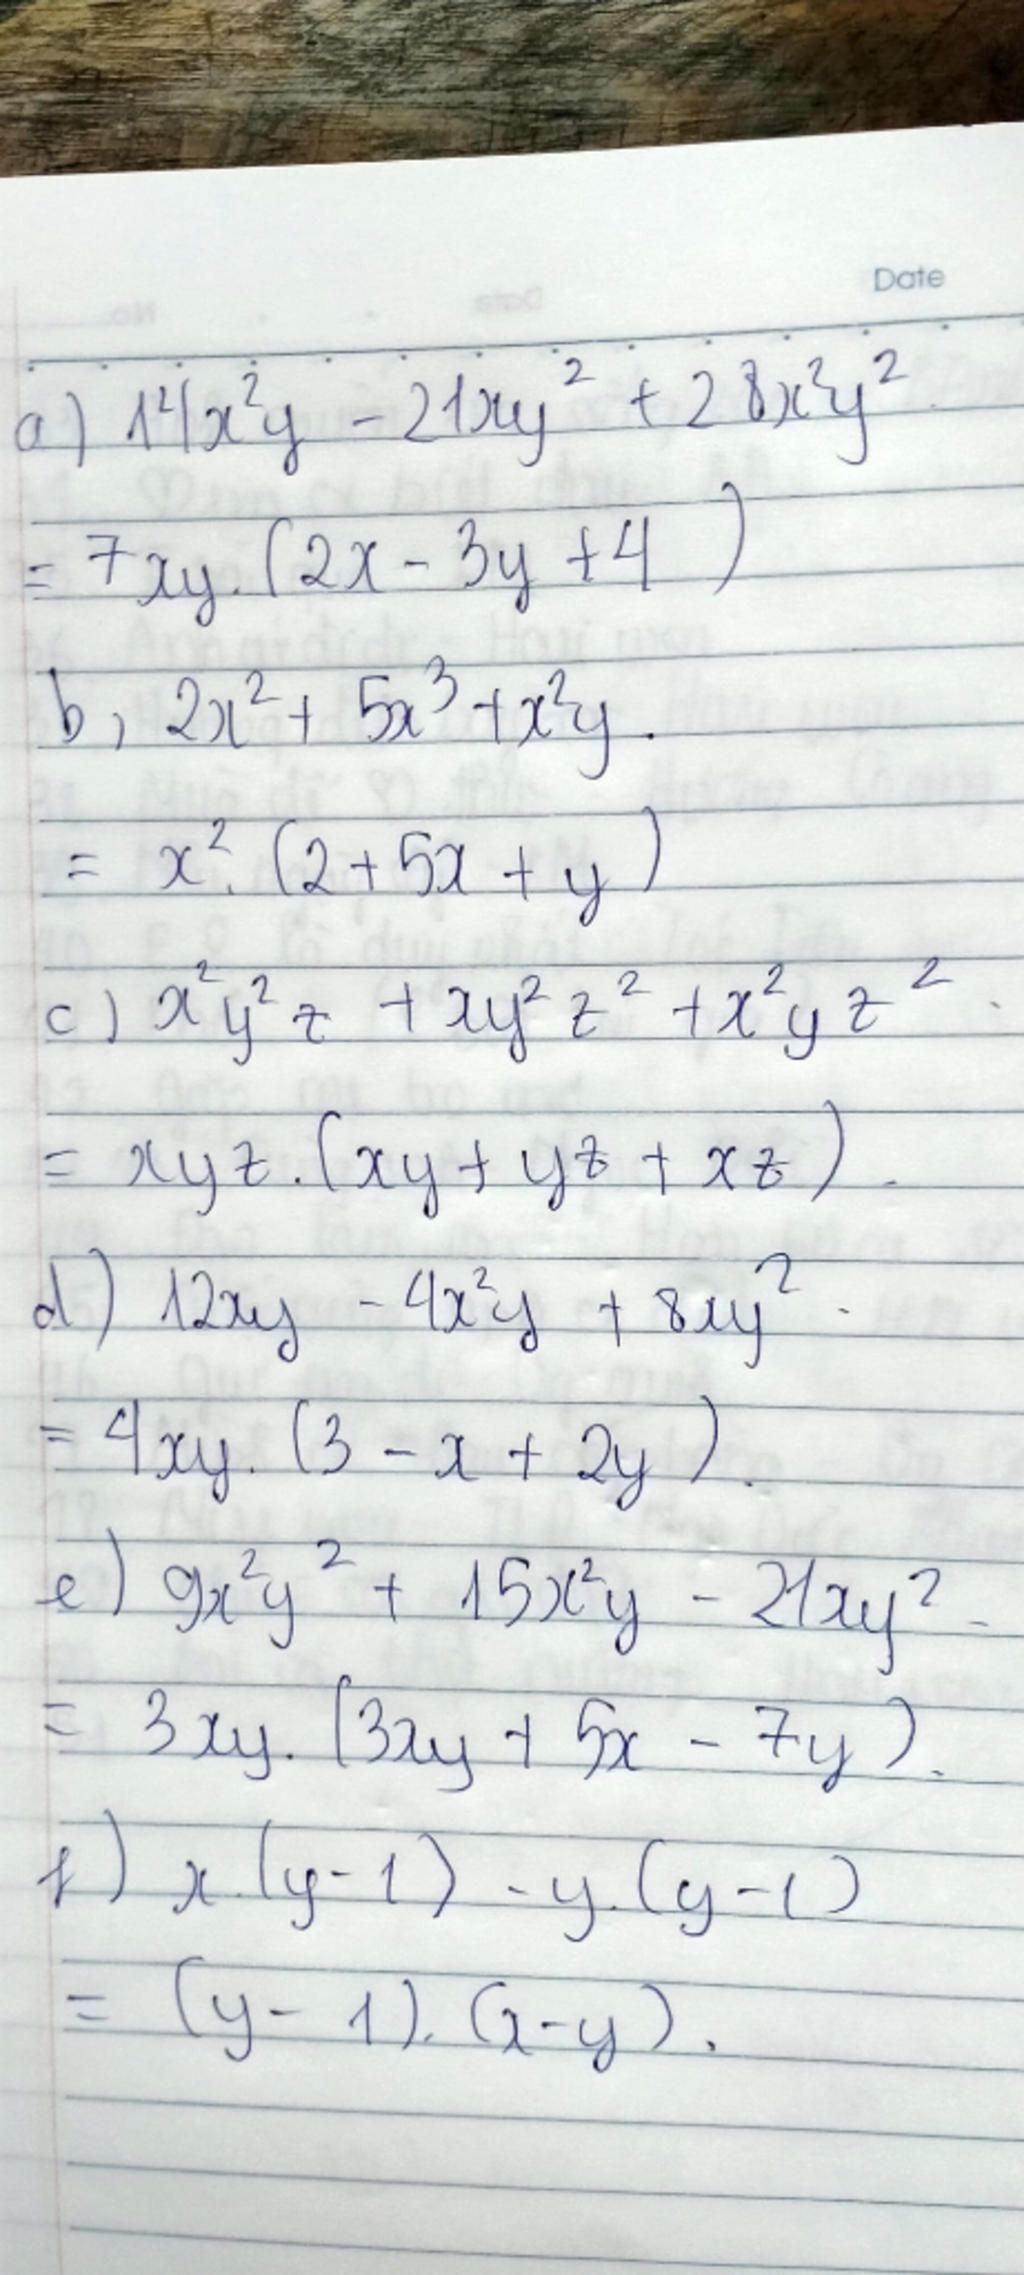 Date
a) 14x²y - 21xy² + 28x²y²
= 7xy.(2x - 3y + 4 )
b, 2x² + 5x³ + x²y.
= x².(2 + 5x + y)
c) x²y²z + xy²z² + x²yz².
= xyz.(xy + yz + xz).
d) 12xy - 4x²y + 8xy².
= 4xy.(3 - x + 2y).
e) 9x²y² + 15x²y - 21xy².
= 3xy.(3xy + 5x - 7y).
f) x.(y-1) - y.(y-1)
= (y - 1).(x-y).